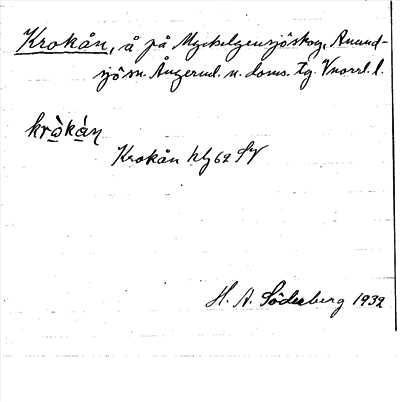 Krokån, å på Myckelgensjöskog, Anund-
sjö sn. Ångerml. n. doms. tg. Vnorrl. l.
kròkán
Krokån hbl 62 SV
H. A. Söderberg 1932